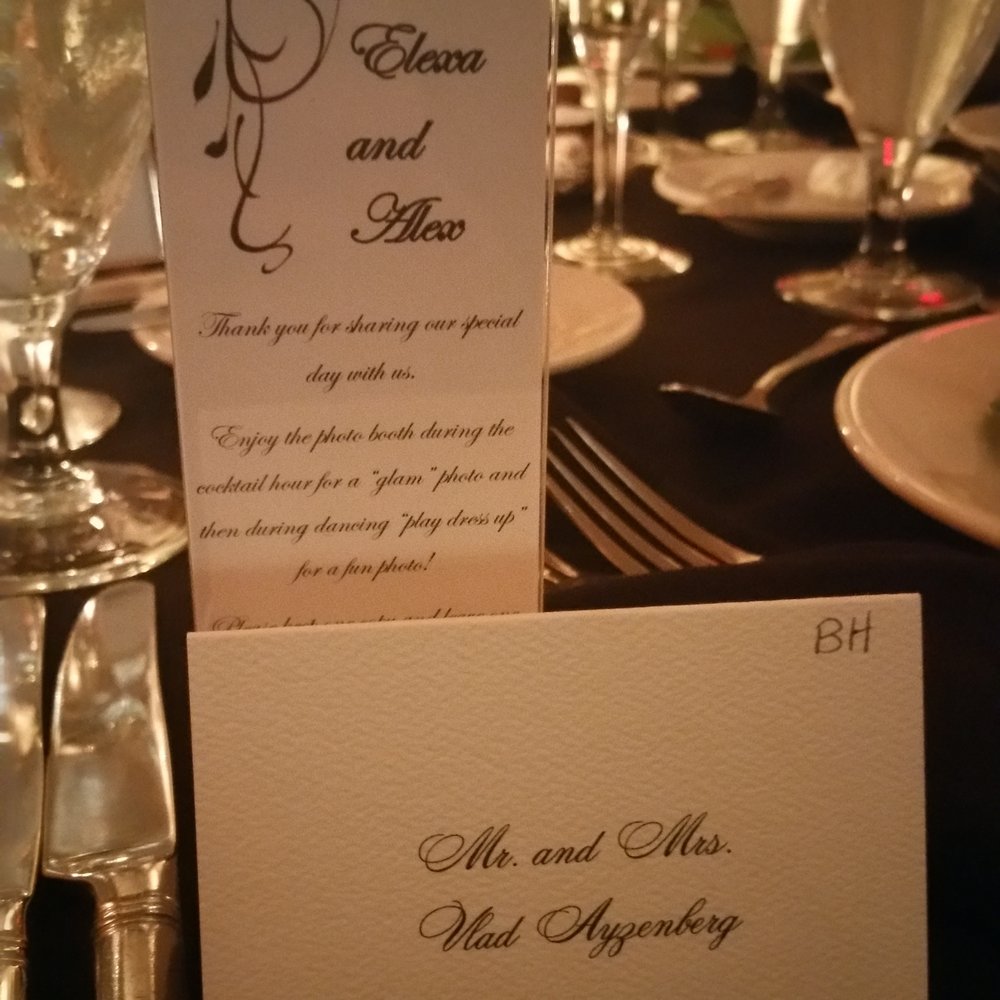 Elexa
and
Alex
Thank you for sharing our special
day with us.
Enjoy the photo booth during the
cocktail hour for a "glam" photo and
then during dancing "play dress up"
for a fun photo!
BH
Mr. and Mrs.
Vlad Ayzenberg